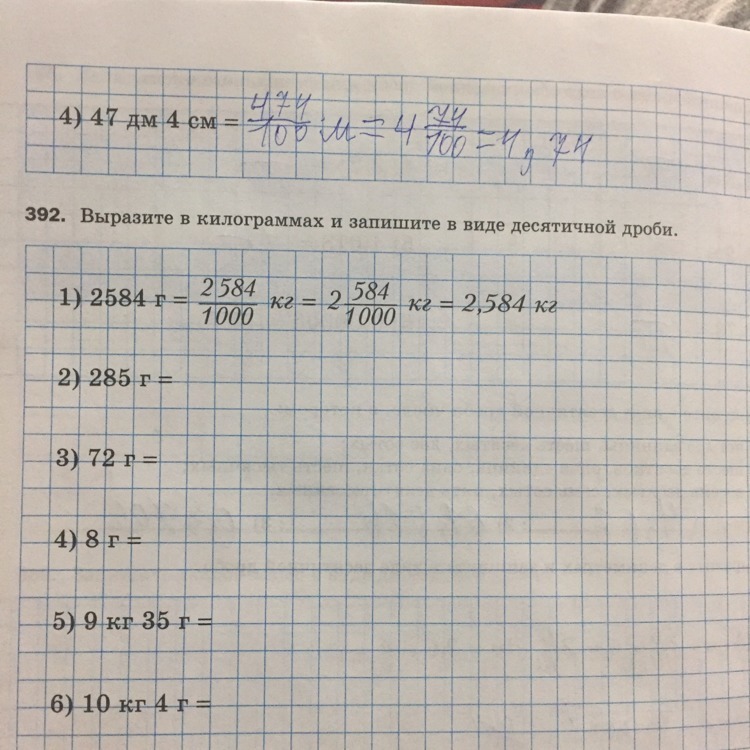 4) 47 дм 4 см = 474/100 м = 4 74/100 = 4,74
392. Выразите в килограммах и запишите в виде десятичной дроби.
1) 2584 г = 2584/1000 кг = 2 584/1000 кг = 2,584 кг
2) 285 г =
3) 72 г =
4) 8 г =
5) 9 кг 35 г =
6) 10 кг 4 г =